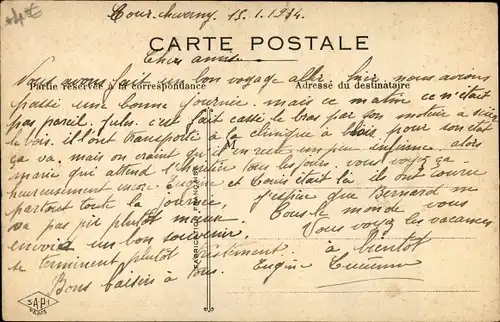 +4€
Cour-Cheverny 15.1.1934
CARTE POSTALE
Chers amis
Nous avons fait un bon voyage aller. hier nous avions
Partie réservée à la correspondance
Adresse du destinataire
passé une bonne journée. mais ce matin ce n'était
pas pareil. Jules s'est fait casser le bras par son moteur à scier
le bois. il l'ont transporté à la clinique à Blois. pour son état
M
ça va. mais on craint qu'il en reste un peu infirme alors
marie qui attend l'heritier tous les jours. vous voyez ça
heureusement encore Eugène et Louis était là ils ont couru
partout toute la journée. j'espère que Bernard ne
va pas pis plutôt mieux. Tous le monde vous
envoie un bon souvenir. Vous voyez les vacances
se terminent plutôt tristement. à bientôt
Bons baisers à tous. Eugène
FABRICATION
SAPI
PARIS